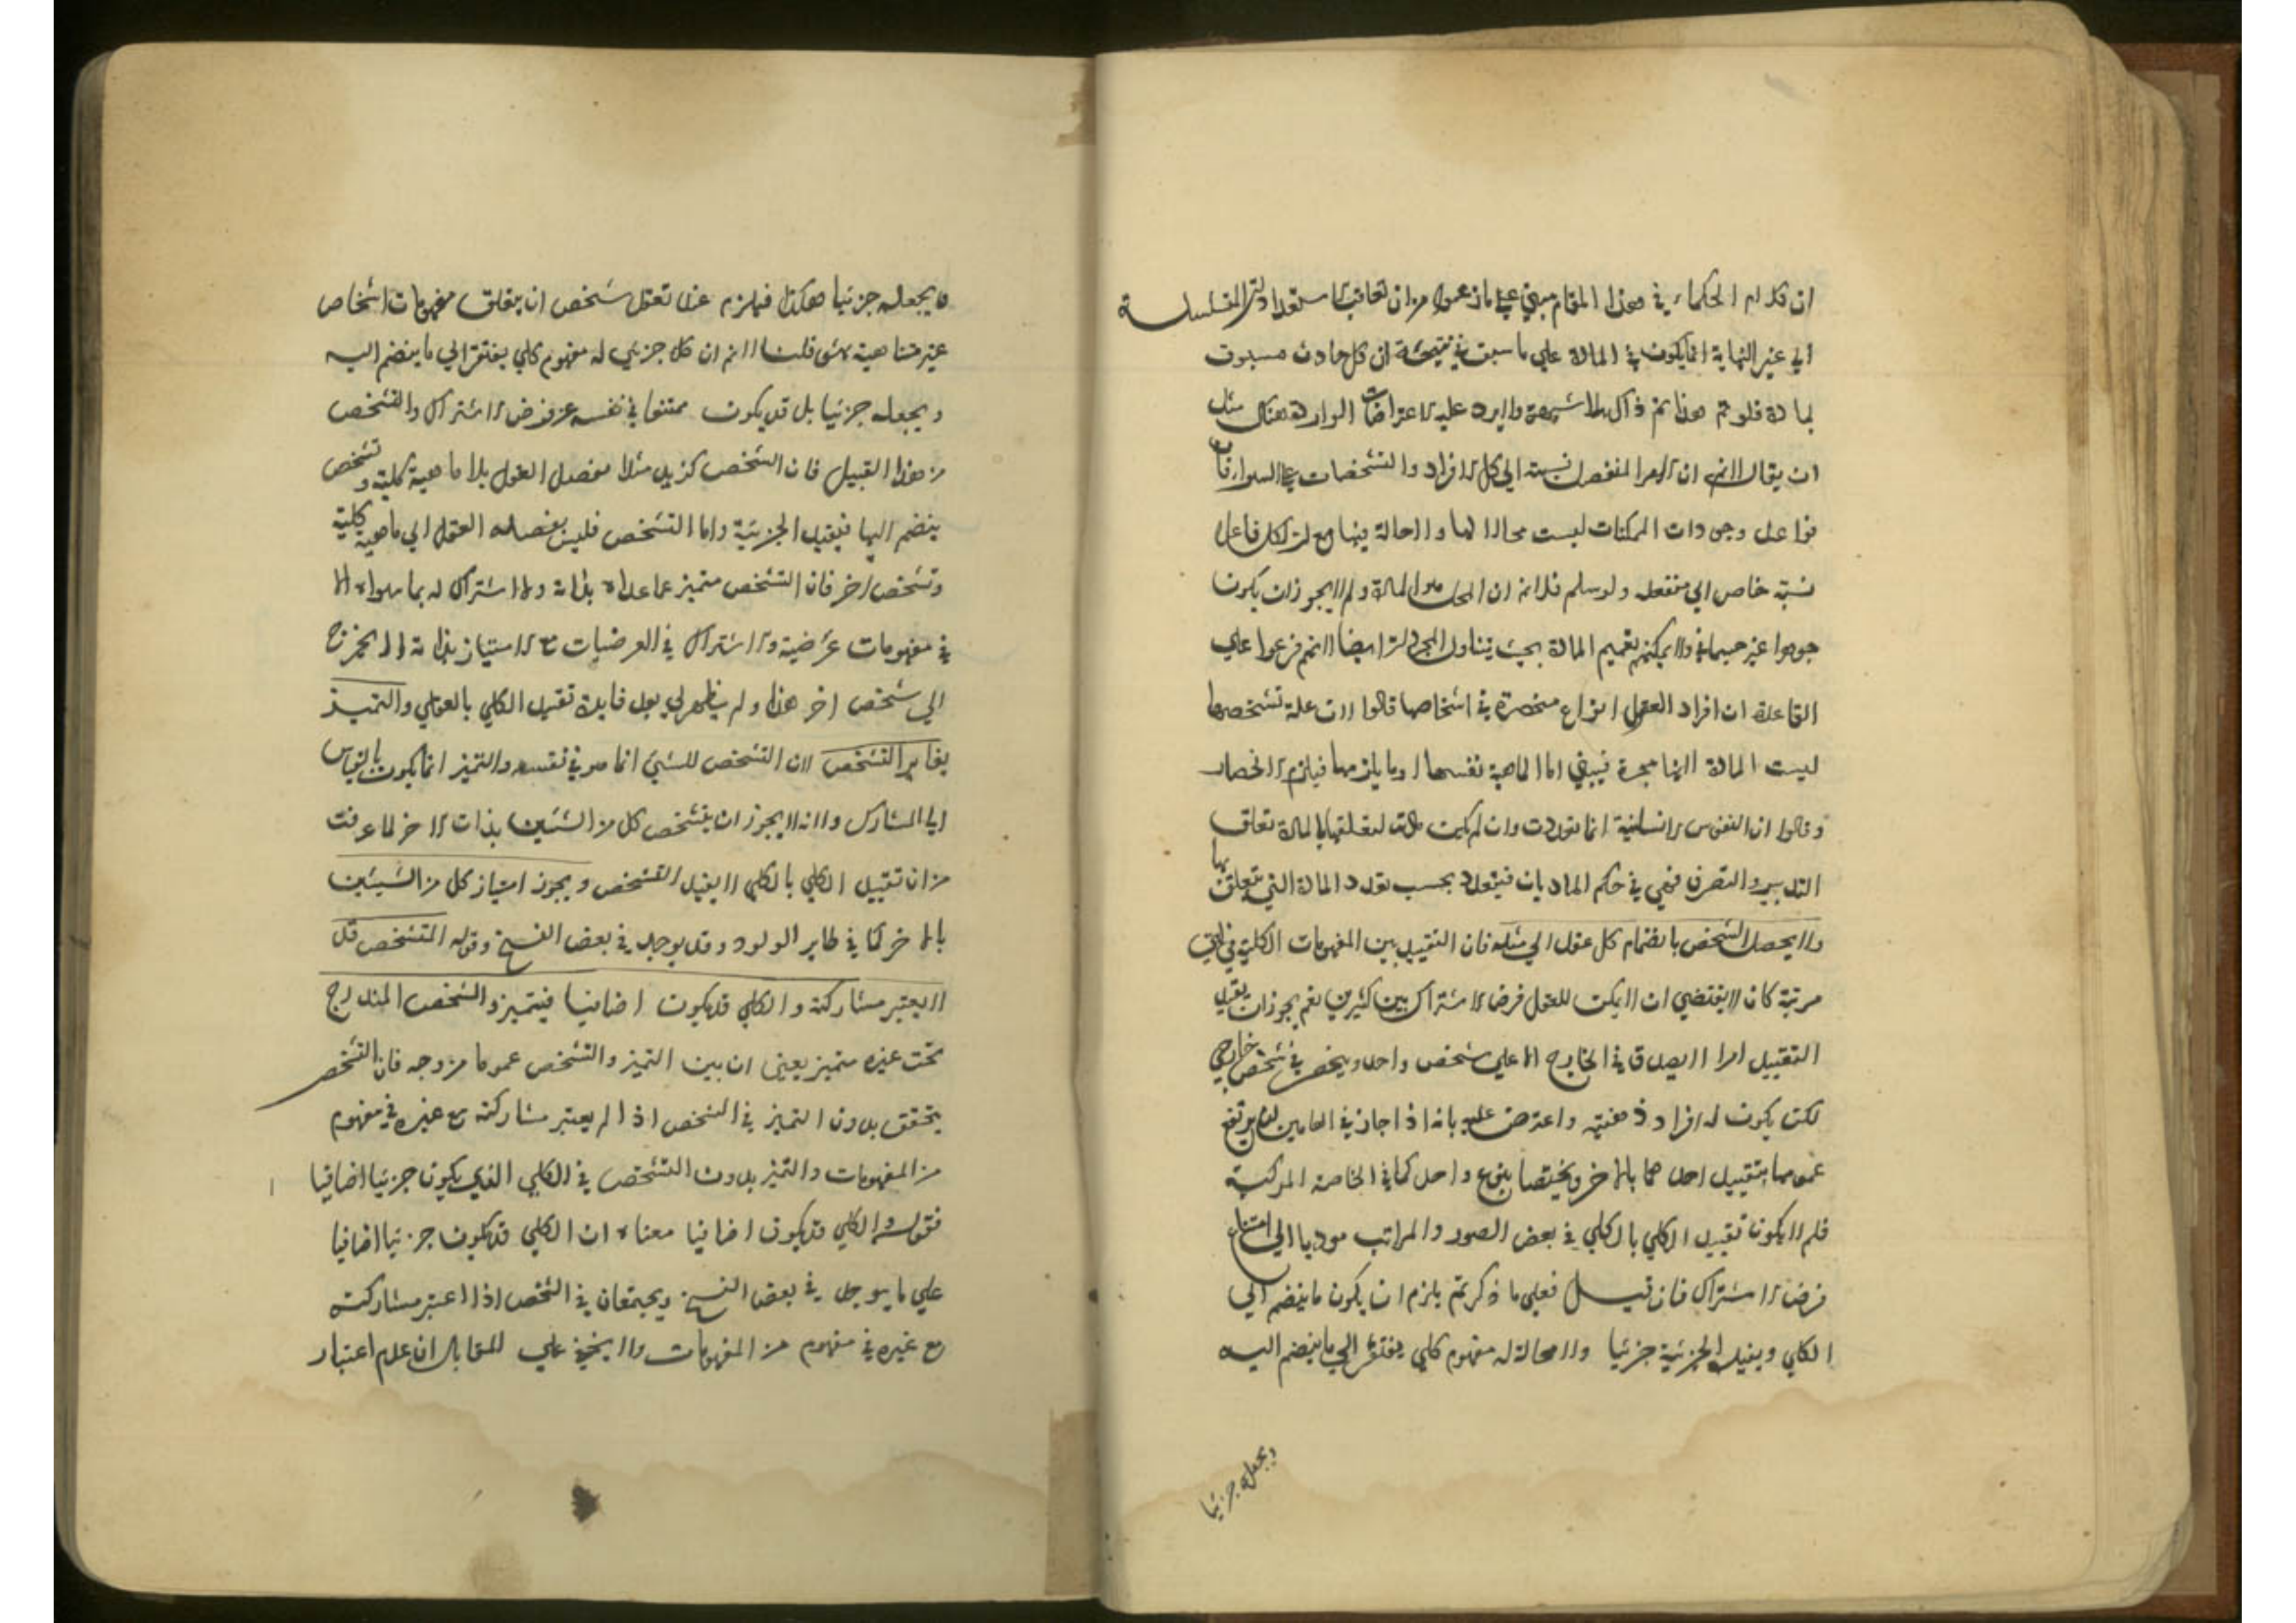 ان كلام الحكماء في هذا المقام مبني على ما زعموا من ان تعاقب الاستعدادات المتسلسلة
الى غير النهاية انما يكون في المادة على ما سبق في نتيجة ان كل حادث مسبوق
بمادة فلو تم هذا تم ذاك بلا شبهة والا يرد عليه الاعتراضات الواردة هناك مثل
ان يقال لا نم ان الامر المنفصل نسبته الى كل الافراد والتشخصات على السواء فان
فواعل وجودات الممكنات ليست محالا لها ولا حالة فيها مع ان لكل فاعل
نسبة خاص الى منفعله ولو سلم فلا نم ان المحل هو المادة ولم لا يجوز ان يكون
جوهرا غير جسماني ولا يمكنهم تعميم المادة بحيث يتناول المجردات ايضا لانهم فرعوا على
القاعدة ان افراد العقول انواع منحصرة في اشخاصها قالوا لان علة تشخصها
ليست المادة لانها مجردة فيبقى اما الماهية نفسها او ما يلزمها فيلزم الانحصار
وقالوا ان النفوس الانسانية انما تعددت وان لم يكن مادية لتعلقها بالمادة تعلق
التدبير والتصرف فهي في حكم الماديات فيتعدد بحسب تعدد المادة التي يتعلق بها
ولا يحصل الشخص بانضمام كل عقل الى مثله فان التقييد بين المفهومات الكلية في اي
مرتبة كان لا يقتضي ان لا يمكن للعقل فرض الاشتراك بين كثيرين نعم يجوز ان يفيد
التقييد امرا لا يصدق في الخارج الا على شخص واحد وينحصر في شخص خارجي
لكن يكون له افراد ذهنية واعترض عليه بانه اذا جاز في العامين ان يرتفع
عمومهما بتقييد احدهما بالاخر ويختصا بنوع واحد كما في الخاصة المركبة
فلم لا يكون تقييد الكلي بالكلي في بعض الصور والمراتب موديا الى امتناع
فرض الاشتراك فان قيل فعلى ما ذكرتم يلزم ان يكون ما ينضم الى
الكلي ويفيد الجزئية جزئيا ولا محالة له مفهوم كلي يفتقر الى ما ينضم اليه
ويجعله جزئيا
ويجعله جزئيا هكذا فيلزم عند تعقل شخص ان يتعلق مفهومات اشخاص
غير متناهية شئ قلنا لا نم ان كل جزئي له مفهوم كلي يفتقر الى ما ينضم اليه
ويجعله جزئيا بل قد يكون ممتنعا في نفسه عن فرض الاشتراك والتشخص
من هذا القبيل فان الشخص كزيد مثلا يفصله العقل الى ماهية كلية وتشخص
ينضم اليها فيفيد الجزئية واما التشخص فليس يفصله العقل الى ماهية كلية
وتشخص اخر فان التشخص متميز عما عداه بذاته ولا اشتراك له بما سواه الا
في مفهومات عرضية والاشتراك في العرضيات مع الامتياز بذاته لا يخرج
الى شخص اخر هذا ولم يظهر لي بعد فايدة تقييد الكلي بالعقلي والتميز
يغاير التشخص لان التشخص للشئ انما هو في نفسه والتميز انما يكون بالقياس
الى المشارك ولانه لا يجوز ان يتشخص كل من الشيئين بذات الاخر لما عرفت
من ان تقييد الكلي بالكلي لا يفيد التشخص ويجوز امتياز كل من الشيئين
بالاخر كما في طاير الولود وقد يوجد في بعض النسخ وقوله المتشخص قد
لا يعتبر مشاركته والكلي قد يكون اضافيا فيتميز والشخص المندرج
تحت غيره متميز يعنى ان بين التميز والتشخص عموما من وجه فان التشخص
يتحقق بدون التميز في الشخص اذا لم يعتبر مشاركته مع غيره في مفهوم
من المفهومات والتميز بدون التشخص في الكلي الذي يكون جزئيا اضافيا
فقوله والكلي قد يكون اضافيا معناه ان الكلي قد يكون جزئيا اضافيا
على ما يوجد في بعض النسخ ويجتمعان في الشخص اذا اعتبر مشاركته
مع غيره في مفهوم من المفهومات ولا يخفى على المقابل ان عدم اعتبار